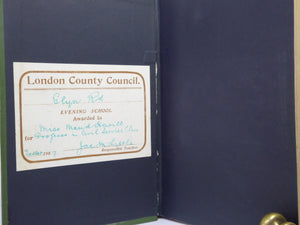 London County Council.
Elyn Rd
EVENING SCHOOL.
Awarded to
Miss Maud
for Progress in Civil Service Class
Jas. M.
Responsible Teacher.